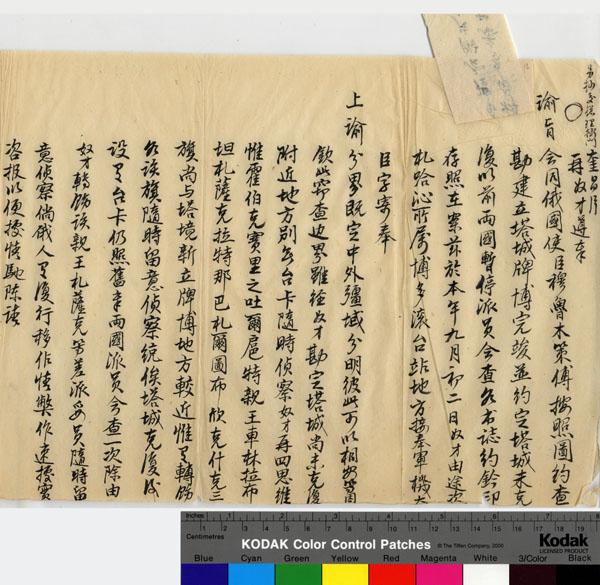 奎昌片
再奴才遵奉
諭旨會同俄國使臣穆魯木策傅按照圖約查
勘建立塔城牌博完竣並約定塔城未克
復以前兩國暫停派員會查各書誌約鈐印
存照在案茲於本年九月初二日奴才由途次
札哈沁所屬博多滾台站地方接奉軍機大
臣字寄奉
上諭分界既定中外疆域分明彼此可以相安等因
欽此竊查邊界雖經奴才勘定塔城尚未克復
附近地方別無台卡隨時偵察奴才再四思維
惟霍伯克賽里之吐爾扈特親王車林拉布
坦札薩克拉特那巴札爾圖布欣克什克三
旗尚與塔境新立牌博地方較近惟有轉飭
各該旗隨時留意偵察統俟塔城克復後
設有台卡仍照舊章兩國派員會查一次除由
奴才轉飭該親王札薩克等差派妥員隨時留
意偵察倘俄人有復行移作情弊作速據實
咨報以便據情馳陳請
Inches 1 2 3 4 5 6 7 8
Centimetres 1 2 3 4 5 6 7 8 9 10 11 12 13 14 15 16 17 18 19
KODAK Color Control Patches © The Tiffen Company, 2000 Kodak
LICENSED PRODUCT
Blue Cyan Green Yellow Red Magenta White 3/Color Black